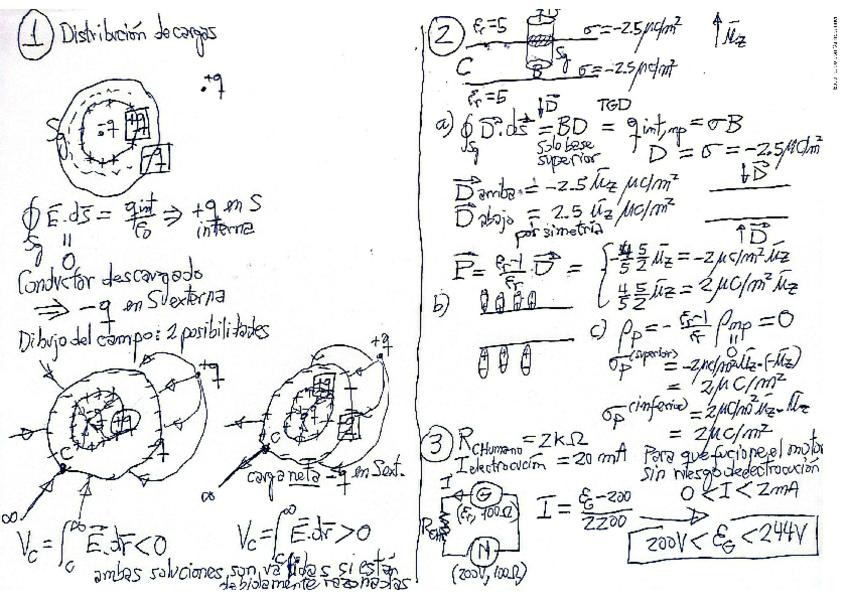 1 Distribución de cargas
+q
Sg -q +q
-q
∮ E⃗·ds⃗ = qint/ε0 ⇒ +q en S interna
Sg
=
0
Conductor descargado
⇒ -q en S externa
Dibujo del campo: 2 posibilidades
+q
+q
C
∞
+q
C
carga neta -q en Sext.
∞
Vc = ∫ E⃗·dr⃗ < 0
Vc = ∫ E⃗·dr⃗ > 0
ambas soluciones son válidas si están
debidamente razonadas
2 εr=5 σ=-2.5 μC/m² ūz
C Sg
B σ=-2.5 μC/m²
εr=5
D⃗
a) ∮ D⃗·ds⃗ = BD = q int,mp = σB
Sg solo base superior TGD
D = σ = -2.5 μC/m²
D⃗ arriba = -2.5 ūz μC/m² D⃗
D⃗ abajo = 2.5 ūz μC/m²
por simetría D⃗
P⃗ = εr-1/εr D⃗ = { -4/5 5/2 ūz = -2 μC/m² ūz
4/5 5/2 ūz = 2 μC/m² ūz
b)
c) ρp = - εr-1/εr ρmp = 0
0
σp (superior) = -2 μC/m² ūz·(-ūz)
= 2 μC/m²
σp (inferior) = 2 μC/m² ūz·ūz
= 2 μC/m²
3 RCHumano = 2kΩ
I electrocución = 20 mA
Para que funcione el motor
sin riesgo de electrocución
0 < I < 2mA
I G
(εr, 100Ω)
RCH
N
(200V, 100Ω)
I = εG-200/2200 →
200V < εG < 244V